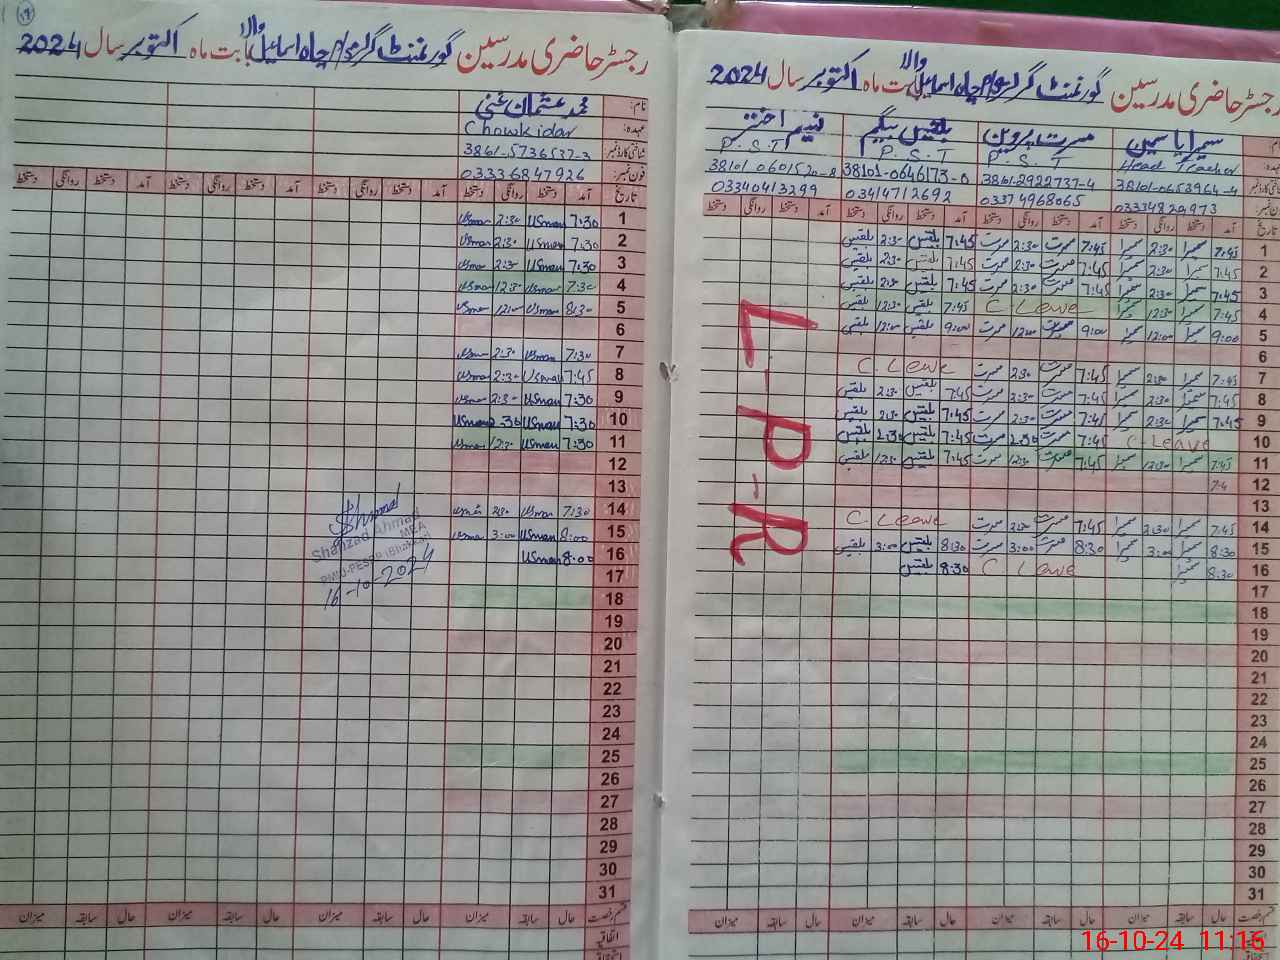 رجسٹر حاضری مدرسین گورنمنٹ گرلز چاہ اسماعیل والا بابت ماہ اکتوبر سال 2024
نام: محمد عثمان غنی
عہدہ: Chowkidar
شناختی کارڈ نمبر: 3861-5736537-3
فون نمبر: 03336847926
تاریخ آمد دستخط روانگی دستخط آمد دستخط روانگی دستخط آمد دستخط روانگی دستخط آمد دستخط روانگی دستخط
1 7:30 Usman 2:30 Usman
2 7:30 Usman 2:30 Usman
3 7:30 Usman 2:30 Usman
4 7:30 Usman 12:30 Usman
5 8:30 Usman 12:00 Usman
6
7 7:30 Usman 2:30 Usman
8 7:45 Usman 2:30 Usman
9 7:30 Usman 2:30 Usman
10 7:30 Usman 2:30 Usman
11 7:30 Usman 12:30 Usman
12
13
14 7:30 Usman 2:30 Usman
15 8:00 Usman 3:00 Usman
16 8:00 Usman
17
18
19
20
21
22
23
24
25
26
27
28
29
30
31
Shahzad Ahmad
MEA
PMIU-PESRP (Bhakkar)
16-10-2024
قسم رخصت حال سابقہ میزان حال سابقہ میزان حال سابقہ میزان حال سابقہ میزان
اتفاقیہ
رجسٹر حاضری مدرسین گورنمنٹ گرلز چاہ اسماعیل والا بابت ماہ اکتوبر سال 2024
نام: سمیرا یاسمین مسرت پروین بلقیس بیگم نسیم اختر
Head Teacher P.S.T P.S.T P.S.T
شناختی کارڈ نمبر: 38101-0653964-4 38101-2922737-4 38101-0646173-0 38101-0601520-8
فون نمبر: 03334829973 03374968065 03414712692 03340413299
تاریخ آمد دستخط روانگی دستخط آمد دستخط روانگی دستخط آمد دستخط روانگی دستخط آمد دستخط روانگی دستخط
1 7:45 سمیرا 2:30 سمیرا 7:45 مسرت 2:30 مسرت 7:45 بلقیس 2:30 بلقیس
2 7:45 سمیرا 2:30 سمیرا 7:45 مسرت 2:30 مسرت 7:45 بلقیس 2:30 بلقیس
3 7:45 سمیرا 2:30 سمیرا 7:45 مسرت 2:30 مسرت 7:45 بلقیس 2:30 بلقیس
4 7:45 سمیرا 12:30 سمیرا C. Leave 7:45 بلقیس 12:30 بلقیس
5 9:00 سمیرا 12:00 سمیرا 9:00 مسرت 12:00 مسرت 9:00 بلقیس 12:00 بلقیس
6
7 7:45 سمیرا 2:30 سمیرا 7:45 مسرت 2:30 مسرت C. Leave
8 7:45 سمیرا 2:30 سمیرا 7:45 مسرت 2:30 مسرت 7:45 بلقیس 2:30 بلقیس
9 7:45 سمیرا 2:30 سمیرا 7:45 مسرت 2:30 مسرت 7:45 بلقیس 2:30 بلقیس
10 C. Leave 7:45 مسرت 2:30 مسرت 7:45 بلقیس 2:30 بلقیس
11 7:45 سمیرا 12:30 سمیرا 7:45 مسرت 12:30 مسرت 7:45 بلقیس 12:30 بلقیس
12 7:4
13
14 7:45 سمیرا 2:30 سمیرا 7:45 مسرت 2:30 مسرت C. Leave
15 8:30 سمیرا 3:00 سمیرا 8:30 مسرت 3:00 مسرت 8:30 بلقیس 3:00 بلقیس
16 8:30 سمیرا C. Leave 8:30 بلقیس
17
18
19
20
21
22
23
24
25
26
27
28
29
30
31
L-P-R
قسم رخصت حال سابقہ میزان حال سابقہ میزان حال سابقہ میزان حال سابقہ میزان
16-10-24 11:16